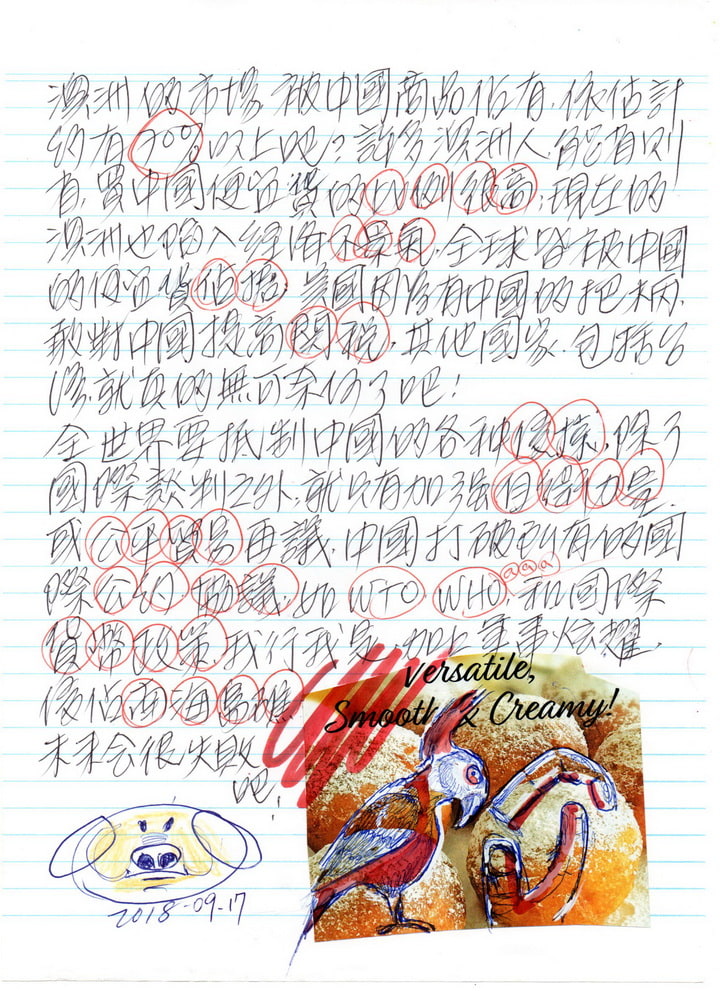 澳洲的市場被中國商品佔有,依估計
約有70%以上吧?許多澳洲人能省則
省,買中國便宜貨的比例很高,現在的
澳洲也陷入經濟不景氣,全球皆被中國
的便宜貨佔據,美國因為有中國的把柄,
敢對中國提高關稅,其他國家,包括台
灣,就真的無可奈何了吧!
全世界要抵制中國的各種侵掠,除了
國際談判之外,就只有加強自經力量,
或公平貿易再議,中國打破現有的國
際公約,協議,如WTO,WHO,@@@和國際
貨幣政策,我行我是,加上軍事炫耀,
侵佔南海島礁,
未來会很失敗
吧!
Versatile,
Smooth & Creamy!
2018-09-17